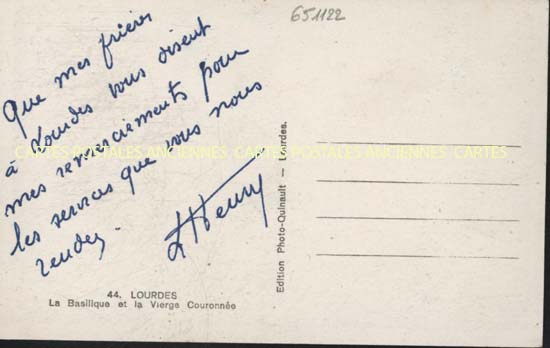 651122
Que mes prières
à Lourdes vous disent
mes remerciements pour
les services que vous nous
rendez.
Henry
CARTES POSTALES ANCIENNES CARTES POSTALES ANCIENNES CARTES
Edition Photo-Quinault — Lourdes.
44. LOURDES
La Basilique et la Vierge Couronnée